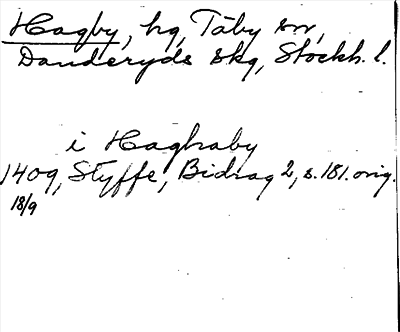 Hagby, hg, Täby sn,
Danderyds skg, Stockh. l.
i Haghaby
1409, Styffe, Bidrag 2, s. 181. orig.
18/9